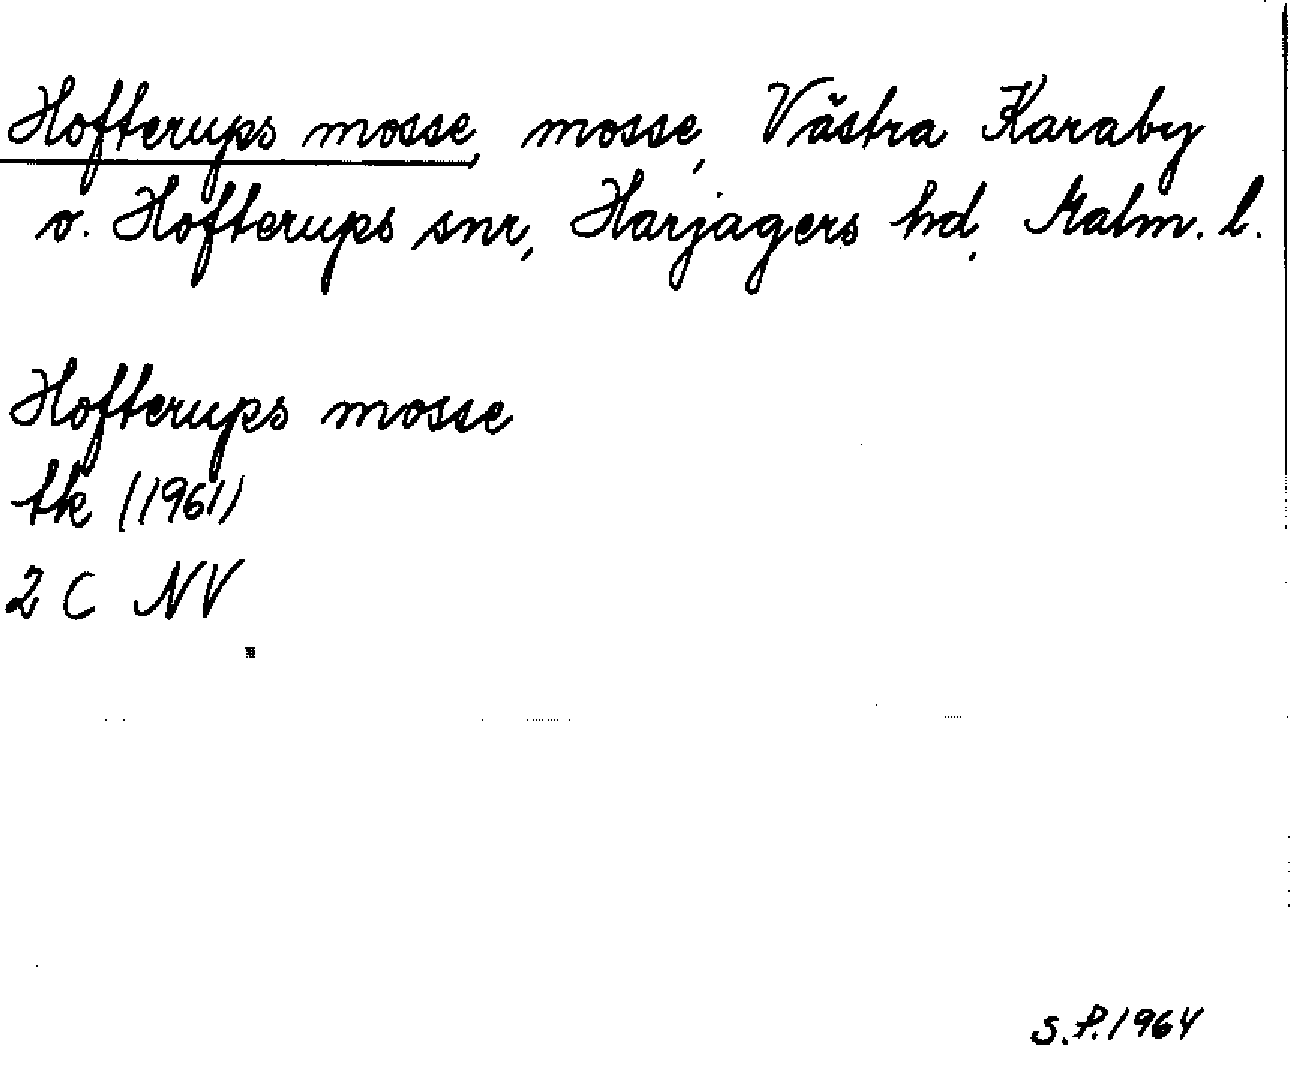 Hofterups mosse, mosse, Västra Karaby
o. Hofterups snr, Harjagers hd, Malm. l.
Hofterups mosse
tk (1961)
2 C NV
S.P. 1964